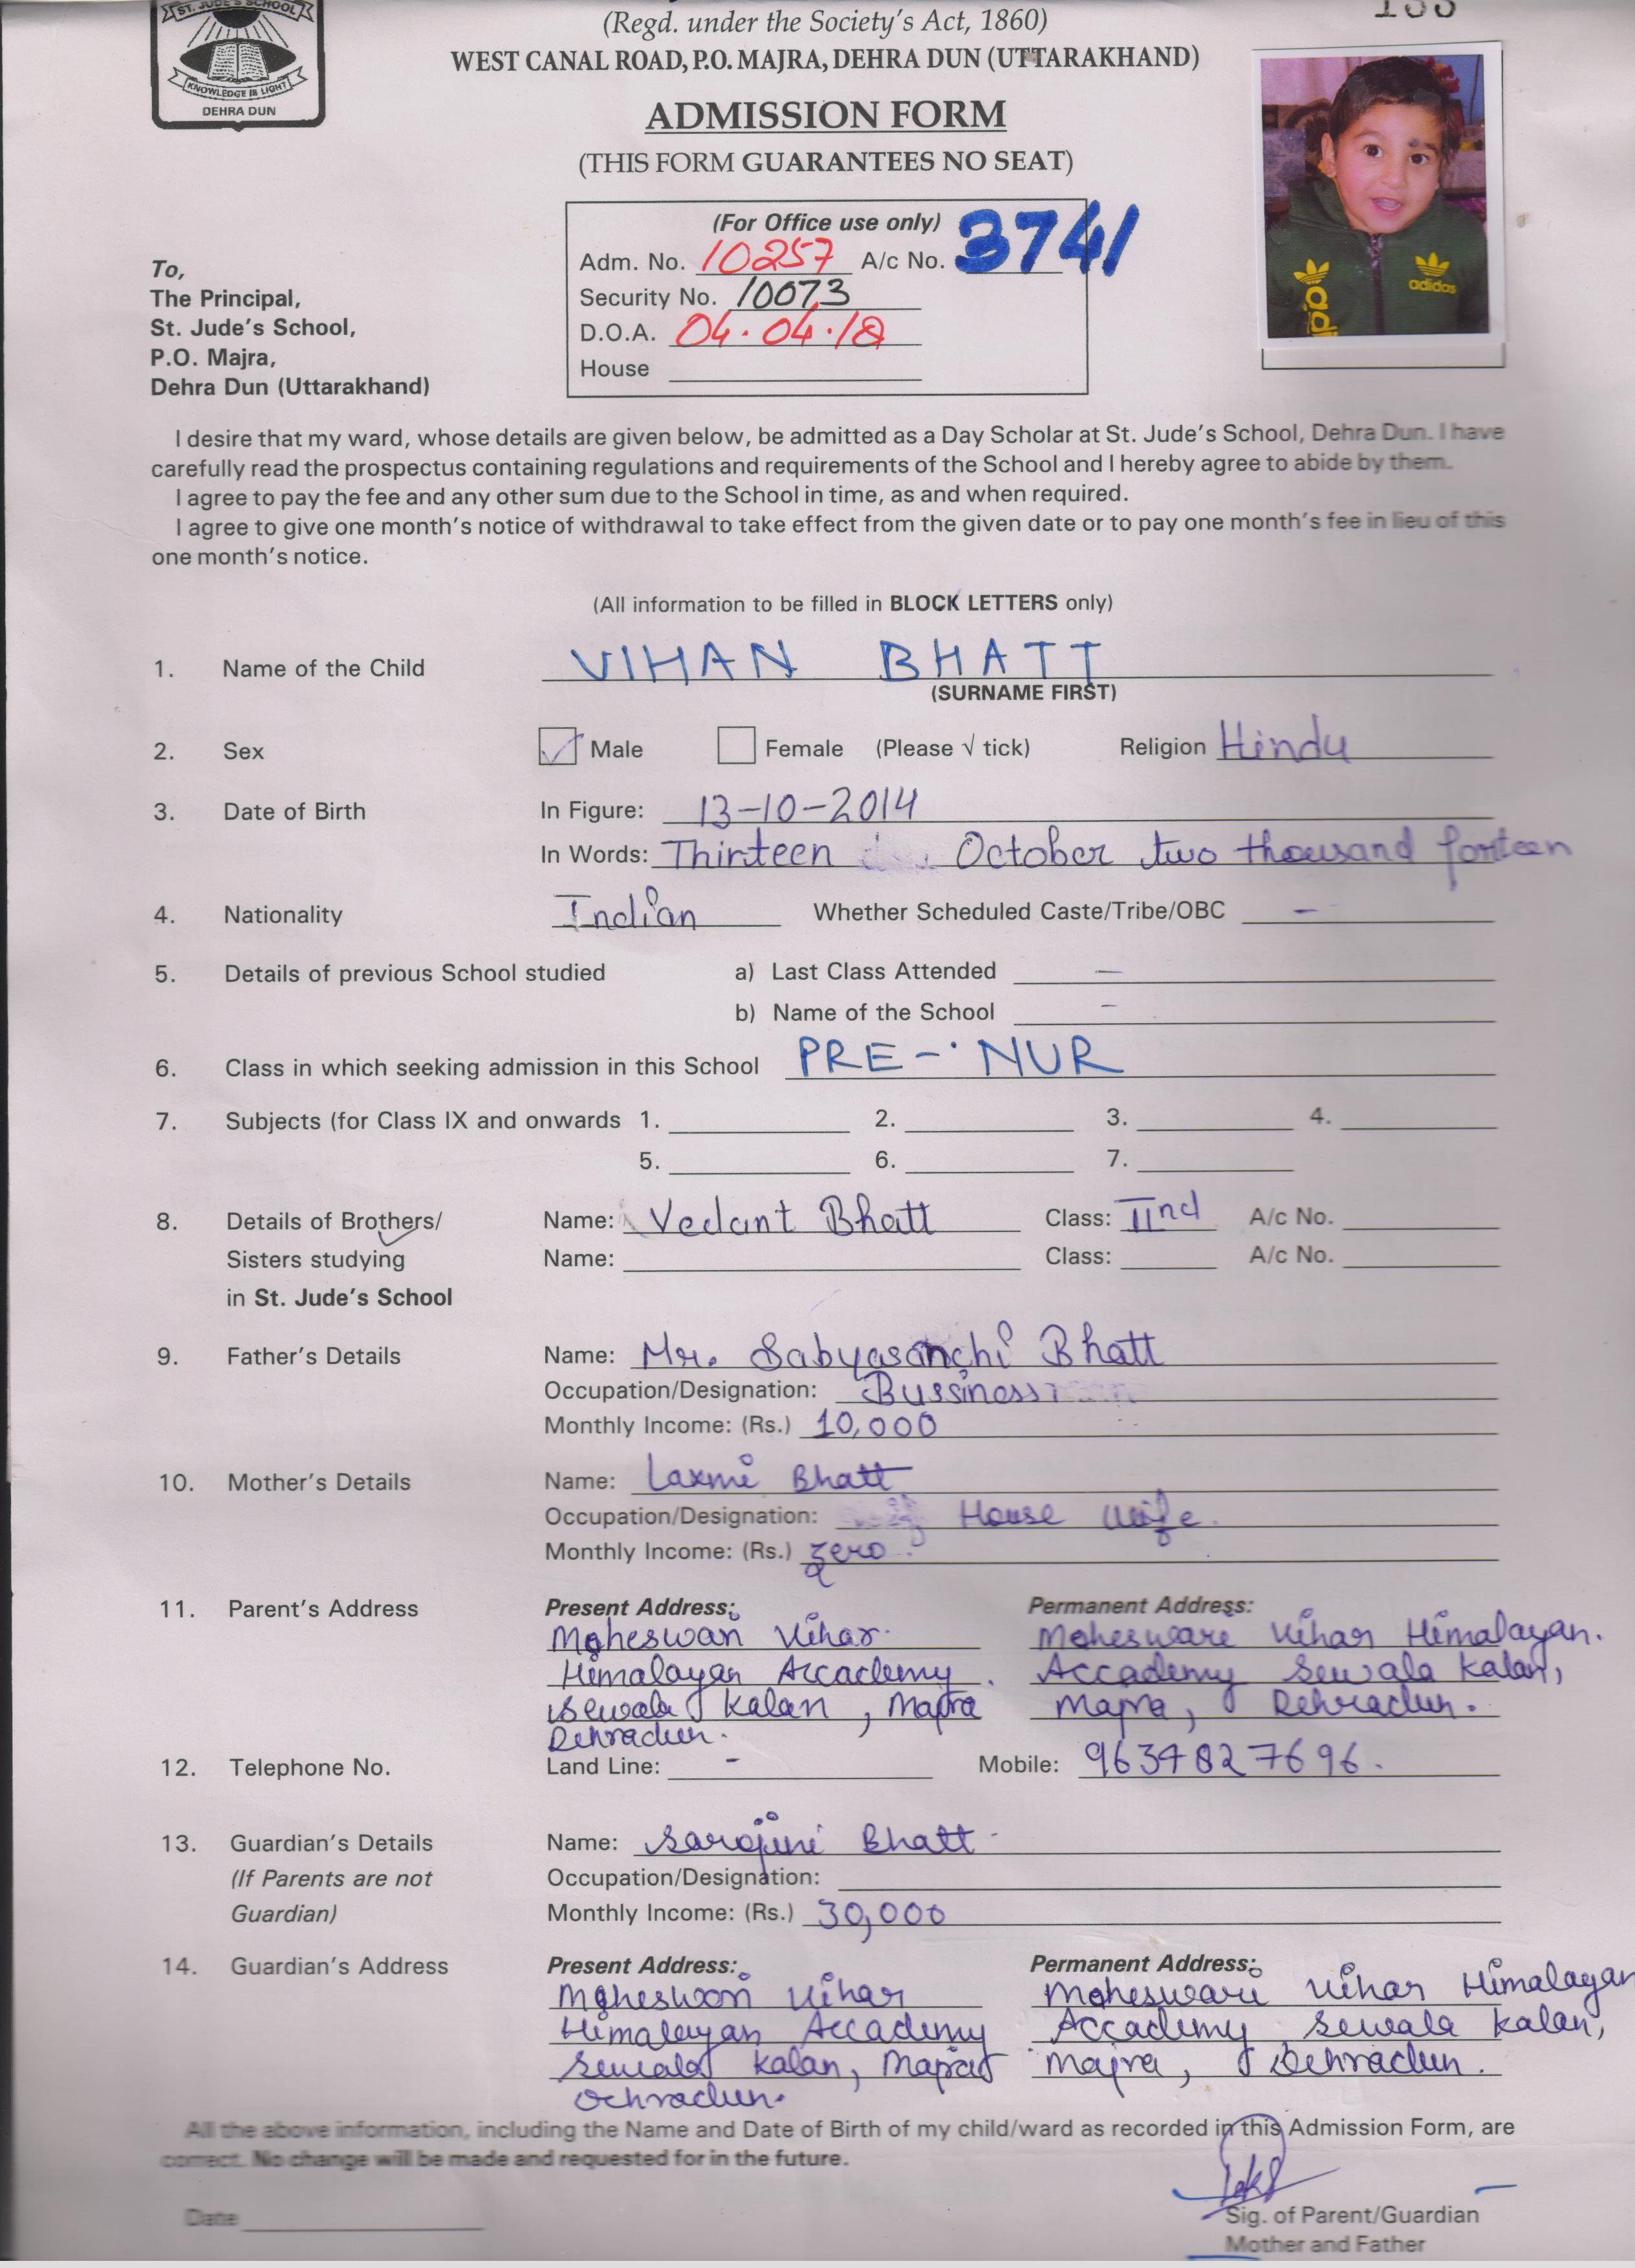 ST. JUDE'S SCHOOL
KNOWLEDGE IS LIGHT
DEHRA DUN
(Regd. under the Society's Act, 1860)
WEST CANAL ROAD, P.O. MAJRA, DEHRA DUN (UTTARAKHAND)
ADMISSION FORM
(THIS FORM GUARANTEES NO SEAT)
adidas
(For Office use only)
Adm. No. 10257 A/c No. 3741
Security No. 10073
D.O.A. 04.04.18
House
To,
The Principal,
St. Jude's School,
P.O. Majra,
Dehra Dun (Uttarakhand)
I desire that my ward, whose details are given below, be admitted as a Day Scholar at St. Jude's School, Dehra Dun. I have
carefully read the prospectus containing regulations and requirements of the School and I hereby agree to abide by them.
I agree to pay the fee and any other sum due to the School in time, as and when required.
I agree to give one month's notice of withdrawal to take effect from the given date or to pay one month's fee in lieu of this
one month's notice.
(All information to be filled in BLOCK LETTERS only)
1. Name of the Child VIHAN BHATT
(SURNAME FIRST)
2. Sex Male Female (Please √ tick) Religion Hindu
3. Date of Birth In Figure: 13-10-2014
In Words: Thirteen October two thousand forteen
4. Nationality Indian Whether Scheduled Caste/Tribe/OBC –
5. Details of previous School studied a) Last Class Attended –
b) Name of the School –
6. Class in which seeking admission in this School PRE-NUR
7. Subjects (for Class IX and onwards 1. 2. 3. 4.
5. 6. 7.
8. Details of Brothers/ Name: Vedant Bhatt Class: IInd A/c No.
Sisters studying Name: Class: A/c No.
in St. Jude's School
9. Father's Details Name: Mr. Sabyasanchi Bhatt
Occupation/Designation: Bussiness
Monthly Income: (Rs.) 10,000
10. Mother's Details Name: Laxmi Bhatt
Occupation/Designation: House wife.
Monthly Income: (Rs.) zero.
11. Parent's Address Present Address: Permanent Address:
Moheswari Vihar. Moheswari Vihar Himalayan.
Himalayan Accademy. Accademy Sewala Kalan,
Sewala Kalan, Majra Majra, Dehradun.
Dehradun.
12. Telephone No. Land Line: - Mobile: 9634827696.
13. Guardian's Details Name: Sarojini Bhatt
(If Parents are not Occupation/Designation:
Guardian) Monthly Income: (Rs.) 30,000
14. Guardian's Address Present Address: Permanent Address:
Moheswari Vihar Moheswari Vihar Himalayan
Himalayan Accademy Accademy Sewala Kalan,
Sewala Kalan, Majra Majra, Dehradun.
Dehradun.
All the above information, including the Name and Date of Birth of my child/ward as recorded in this Admission Form, are
correct. No change will be made and requested for in the future.
Date
Sig. of Parent/Guardian
Mother and Father